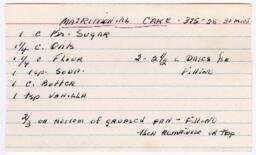 MATRIMONIAL CAKE - 325 - 25-30 min
1 C BR. SUGAR
1¼ C OATS
1¼ C FLOUR 2-2½ C DATES for
1 tsp SODA. FILLING
1 C. BUTTER
1 tsp VANILLA
⅔ on BOTTOM OF GREASED PAN - FILLING
then REMAINDER on TOP